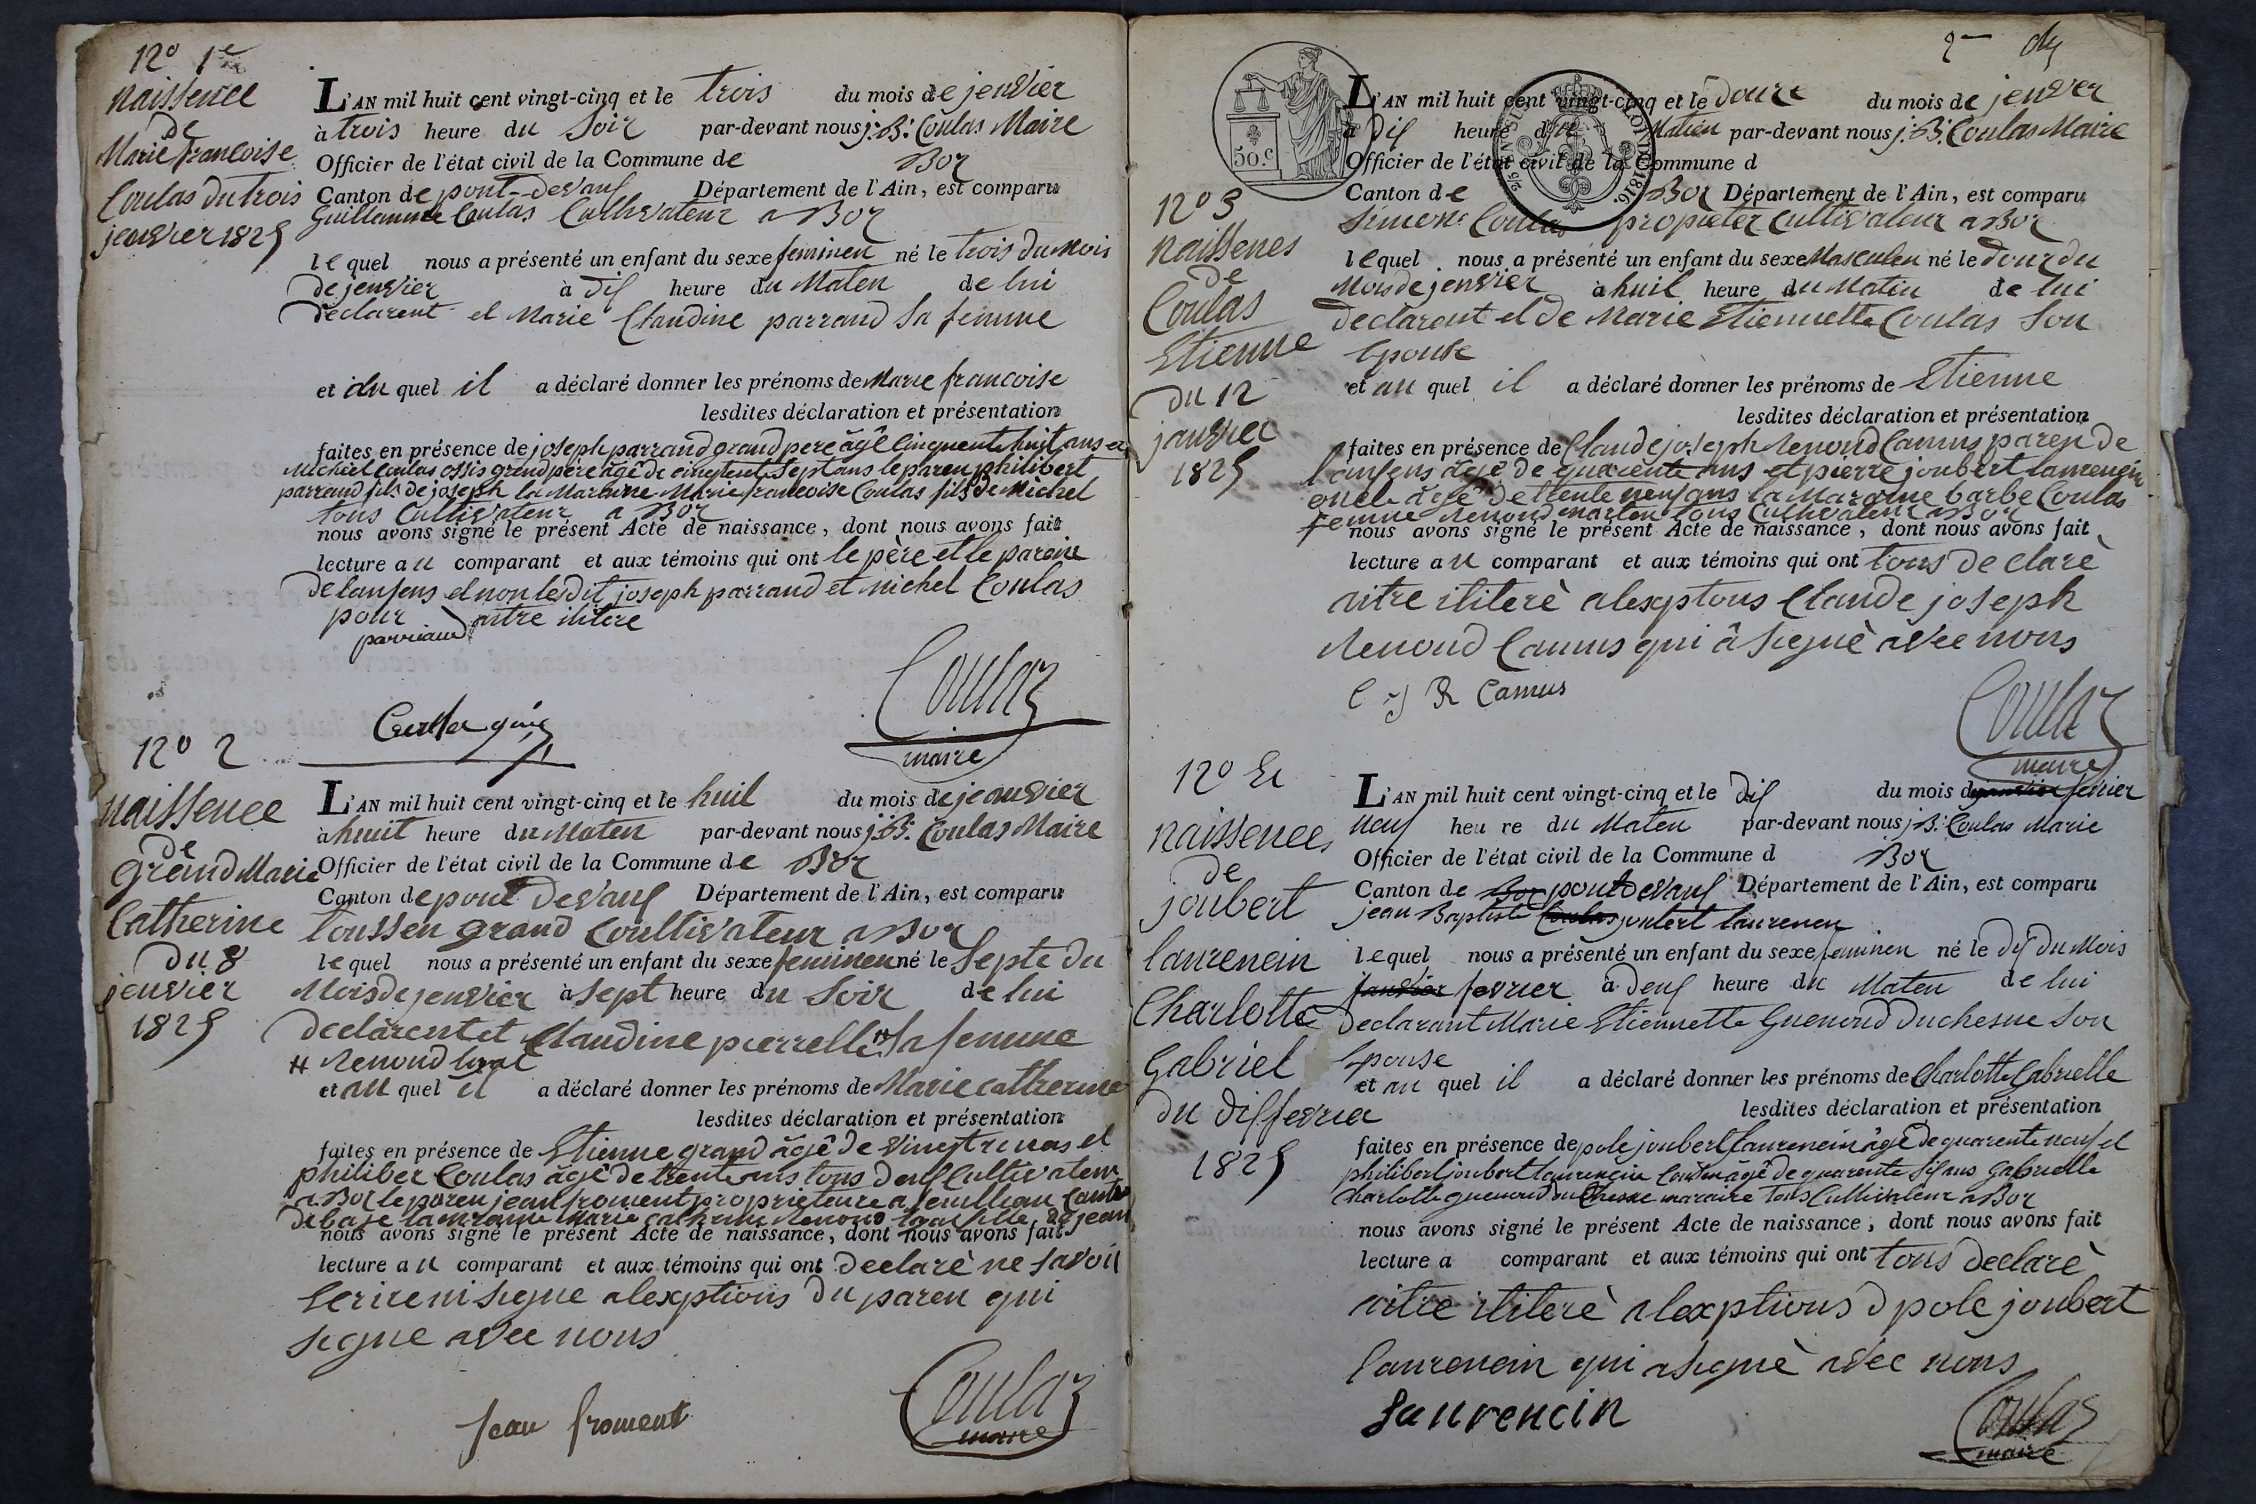 N.º 1.e
naissence
de
Marie francoise
Coulas du trois
jenvier 1825
L'AN mil huit cent vingt-cinq et le trois du mois de jenvier
à trois heure du Soir par-devant nous j. B. Coulas Maire
Officier de l'état civil de la Commune de Boz
Canton de pont-devauf Département de l'Ain, est comparu
Guillaumme Coulas Cultivateur a Boz
lequel nous a présenté un enfant du sexe feminen né le trois du Mois
de jenvier à dif heure du Maten de lui
declarent et Marie Claudine parraud Sa femme
et du quel il a déclaré donner les prénoms de Marie francoise
lesdites déclaration et présentation
faites en présence de joseph parraud grand pere âgê Cinquente huit ans et
Michiel Coulas grend pere âgê de Sept ans le paren philibert
parraud fils de joseph la Maraine Marie francoise Coulas fils de Michel
tous Cultivateur a Boz
nous avons signé le présent Acte de naissance, dont nous avons fait
lecture au comparant et aux témoins qui ont le père et le paraine
de lanfens et non lesdit joseph parraud et michel Coulas
pour aitre ilitere
parriaud
Coulas
maire
N.º 2
naissence
de
grend Marie
Catherine
du 8
jenvier
1825
L'AN mil huit cent vingt-cinq et le huit du mois de jeanvier
à huit heure du Maten par-devant nous j. B. Coulas Maire
Officier de l'état civil de la Commune de Boz
Canton de pont devauf Département de l'Ain, est comparu
toussen grand Coultivateur a Boz
lequel nous a présenté un enfant du sexe feminen né le Septe du
Mois de jenvier à Sept heure du Soir de lui
declarent et Claudine pierrette # Sa femme
# renoud
et au quel il a déclaré donner les prénoms de Marie Catherine
lesdites déclaration et présentation
faites en présence de Etienne grand âgê de vingt et
philiber Coulas âgê de trente ans tous deuf Cultivateur
a Boz le paren jean froment proprieteire a
de la maraine Marie Catherine renoud fille de jean
nous avons signé le présent Acte de naissance, dont nous avons fait
lecture au comparant et aux témoins qui ont declarè ne Savoir
Ecrire ni Signe alexptions du paren qui
Signe avec nous
jean froment
Coulas
maire
2
L'AN mil huit cent vingt-cinq et le douze du mois de jenvier
à dif heure du Maten par-devant nous j. B. Coulas Maire
Officier de l'état civil de la Commune d
Canton de Boz Département de l'Ain, est comparu
50.c
N.º 3
naissenes
de
Coulas
Etienne
du 12
janvier
1825
Simon Coulas propieter Cultivateur a Boz
lequel nous a présenté un enfant du sexe Masculen né le douz du
Mois de jenvier à huit heure du Maten de lui
declarent et de Marie Etiennette Coulas Son
Epouse
et au quel il a déclaré donner les prénoms de Etienne
lesdites déclaration et présentation
faites en présence de Claude joseph renoud Camus paren de
lanfens âgê de quarente ans et pierre joubert laurencin
oncle âgê de trente neuf ans la Maraine barbe Coulas
femme renoud marten tous Cultivateur a Boz
nous avons signé le présent Acte de naissance, dont nous avons fait
lecture au comparant et aux témoins qui ont tous declarè
aitre iliterè alexptous Claude joseph
renoud Camus qui â Signè avec nous
C j R Camus
Coulas
maire
N.º 4
naissences
de
joubert
laurencin
Charlotte
Gabriel
du dif fevrier
1825
L'AN mil huit cent vingt-cinq et le dif du mois d janvier fevrier
neuf heure du Maten par-devant nous j. B. Coulas Marie
Officier de l'état civil de la Commune d Boz
Canton de Boz pont devauf Département de l'Ain, est comparu
jean Baptiste Coulas joubert laurencin
lequel nous a présenté un enfant du sexe feminen né le dif du Mois
janvier fevrier à deuf heure du Maten de lui
declarant Marie Etiennette Guenoud duchesne Son
Epouse
et au quel il a déclaré donner les prénoms de Charlotte Gabrielle
lesdites déclaration et présentation
faites en présence de pole joubert laurencin âgê de quarente neuf et
philibert joubert laurencin âgê de quarente Sif ans Gabrielle
Charlotte guenoud duChesne maraire tous Cultivateur a Boz
nous avons signé le présent Acte de naissance, dont nous avons fait
lecture a comparant et aux témoins qui ont tous declarè
aitre iliterè alexptions d pole joubert
laurencin qui a Signè avec nous
Laurencin
Coulas
maire